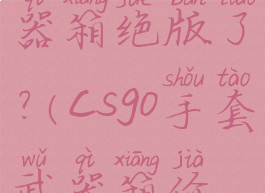 qì xiāng jué bǎn liǎo
器箱绝版了
shǒu tào
?(csgo手套
wǔ qì xiāng jià
武器箱